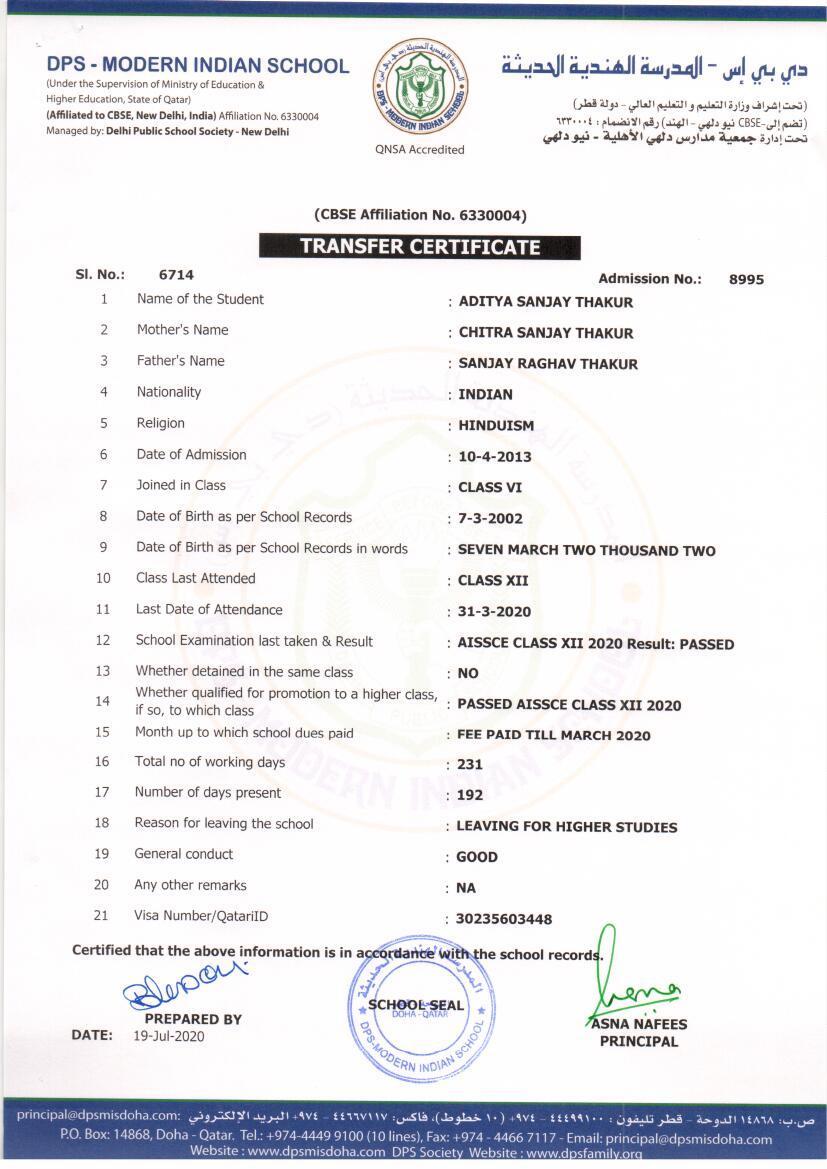 DPS - MODERN INDIAN SCHOOL
(Under the Supervision of Ministry of Education &
Higher Education, State of Qatar)
(Affiliated to CBSE, New Delhi, India) Affiliation No. 6330004
Managed by: Delhi Public School Society - New Delhi
DPS - MODERN INDIAN SCHOOL
QNSA Accredited
دي بي إس - المدرسة الهندية الحديثة
(تحت إشراف وزارة التعليم و التعليم العالي - دولة قطر)
(تضم إلى-CBSE نيو دلهي - الهند) رقم الانضمام : ٦٣٣٠٠٠٤
تحت إدارة جمعية مدارس دلهي الأهلية - نيو دلهي
(CBSE Affiliation No. 6330004)
TRANSFER CERTIFICATE
Sl. No.: 6714 Admission No.: 8995
1 Name of the Student : ADITYA SANJAY THAKUR
2 Mother's Name : CHITRA SANJAY THAKUR
3 Father's Name : SANJAY RAGHAV THAKUR
4 Nationality : INDIAN
5 Religion : HINDUISM
6 Date of Admission : 10-4-2013
7 Joined in Class : CLASS VI
8 Date of Birth as per School Records : 7-3-2002
9 Date of Birth as per School Records in words : SEVEN MARCH TWO THOUSAND TWO
10 Class Last Attended : CLASS XII
11 Last Date of Attendance : 31-3-2020
12 School Examination last taken & Result : AISSCE CLASS XII 2020 Result: PASSED
13 Whether detained in the same class : NO
14 Whether qualified for promotion to a higher class,
if so, to which class : PASSED AISSCE CLASS XII 2020
15 Month up to which school dues paid : FEE PAID TILL MARCH 2020
16 Total no of working days : 231
17 Number of days present : 192
18 Reason for leaving the school : LEAVING FOR HIGHER STUDIES
19 General conduct : GOOD
20 Any other remarks : NA
21 Visa Number/QatariID : 30235603448
Certified that the above information is in accordance with the school records.
المدرسة الهندية الحديثة
SCHOOL SEAL
DOHA - QATAR
DPS-MODERN INDIAN SCHOOL
PREPARED BY
DATE: 19-Jul-2020
ASNA NAFEES
PRINCIPAL
ص.ب: ١٤٨٦٨ الدوحة - قطر تليفون : ٤٤٤٩٩١٠٠ - ٩٧٤+ (١٠ خطوط)، فاكس: ٤٤٦٦٧١١٧ - ٩٧٤+ البريد الإلكتروني :principal@dpsmisdoha.com
P.O. Box: 14868, Doha - Qatar. Tel.: +974-4449 9100 (10 lines), Fax: +974 - 4466 7117 - Email: principal@dpsmisdoha.com
Website : www.dpsmisdoha.com DPS Society Website : www.dpsfamily.org